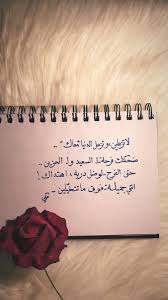 لا تزعلين وتزعل الدنيا معاك " ..
ضحكتك فرحة السعيد و الحزين ..
حتى الفرح لوضل دربه ، اهتداك !
انتي جميلة فوق ما تتخيلين ~